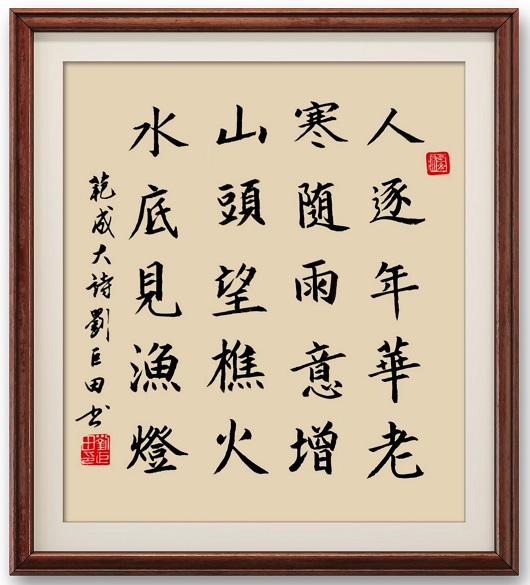 人逐年華老
寒隨雨意增
山頭望樵火
水底見漁燈
範成大詩劉巨田书
劉巨田印